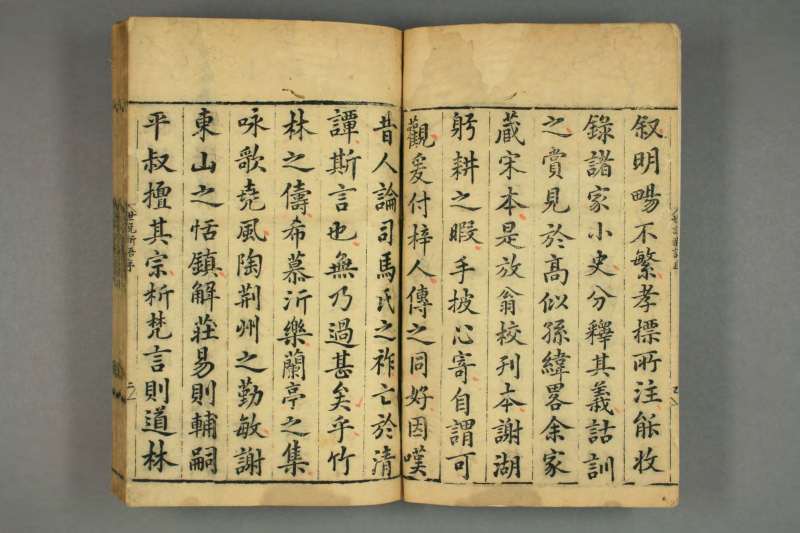 叙明暢不繁孝標所注能收
錄諸家小史分釋其義詁訓
之賞見於髙似孫緯畧余家
蔵宋本是放翁校刋本謝湖
躬耕之暇手披心寄自謂可
觀爰付梓人傳之同好因嘆
昔人論司馬氏之祚亡於清
譚斯言也無乃過甚矣乎竹
林之儔希慕沂樂蘭亭之集
咏歌堯風陶荆州之勤敏謝
東山之恬鎮解莊易則輔嗣
平叔擅其宗析梵言則道林
世說新語序
二